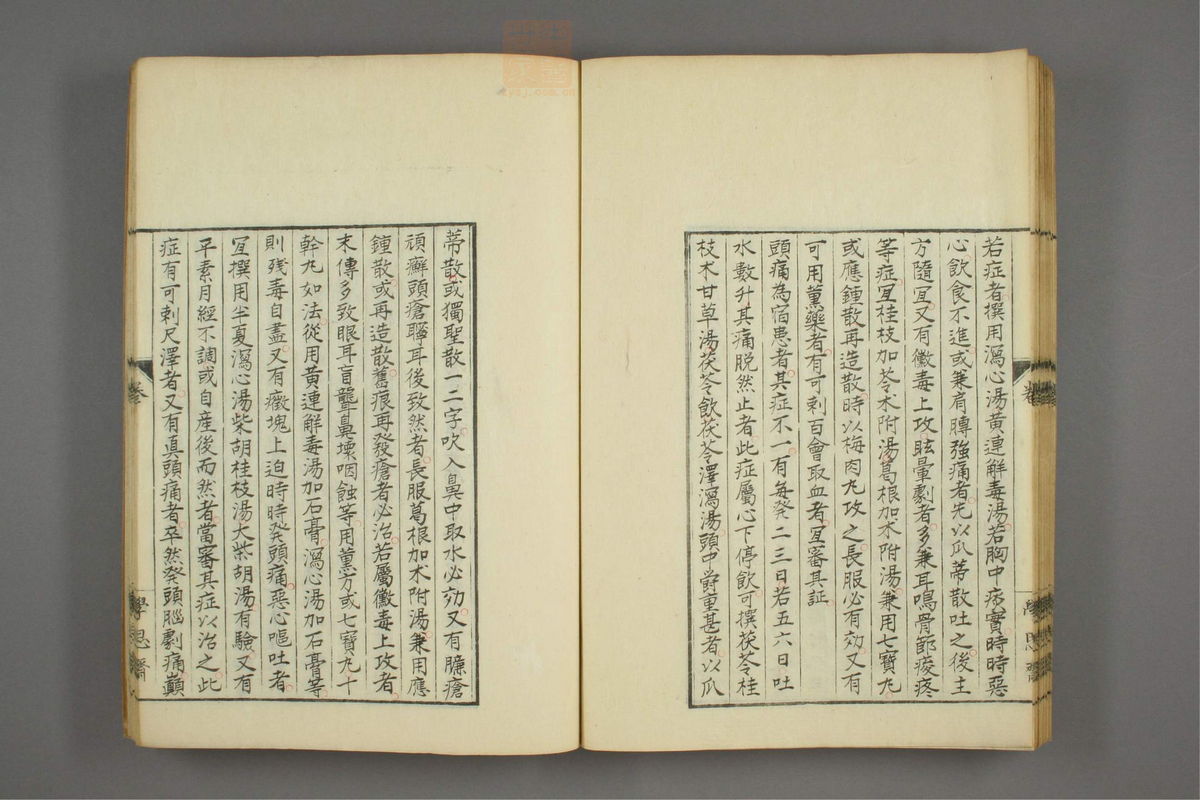 若症者撰用瀉心湯黃連解毒湯若胸中痞實時時惡
心飲食不進或兼肩膊強痛者先以瓜蒂散吐之後主
方隨宜又有黴毒上攻眩暈劇者多兼耳鳴骨節痠疼
等症宜桂枝加苓朮附湯葛根加朮附湯兼用七寶丸
或應鍾散再造散時以梅肉丸攻之長服必有效又有
可用薰藥者有可刺百會取血者宜審其証
頭痛為宿患者其症不一有每發二三日若五六日吐
水數升其痛脫然止者此症屬心下停飲可撰茯苓桂
枝朮甘草湯茯苓飲茯苓澤瀉湯頭中鬱重甚者以瓜
蒂散或獨聖散一二字吹入鼻中取水必効又有臁瘡
頑癬頭瘡聤耳後致然者長服葛根加朮附湯兼用應
鍾散或再造散舊痕再發瘡者必治若屬黴毒上攻者
末傳多致眼耳盲聾鼻壞咽蝕等用薰方或七寶丸十
幹丸如法從用黃連解毒湯加石膏瀉心湯加石膏等
則殘毒自盡又有癥塊上迫時時發頭痛惡心嘔吐者
宜撰用半夏瀉心湯柴胡桂枝湯大柴胡湯有驗又有
平素月經不調或自產後而然者當審其症以治之此
症有可刺尺澤者又有真頭痛者卒然發頭腦劇痛巔
卷
學思齋